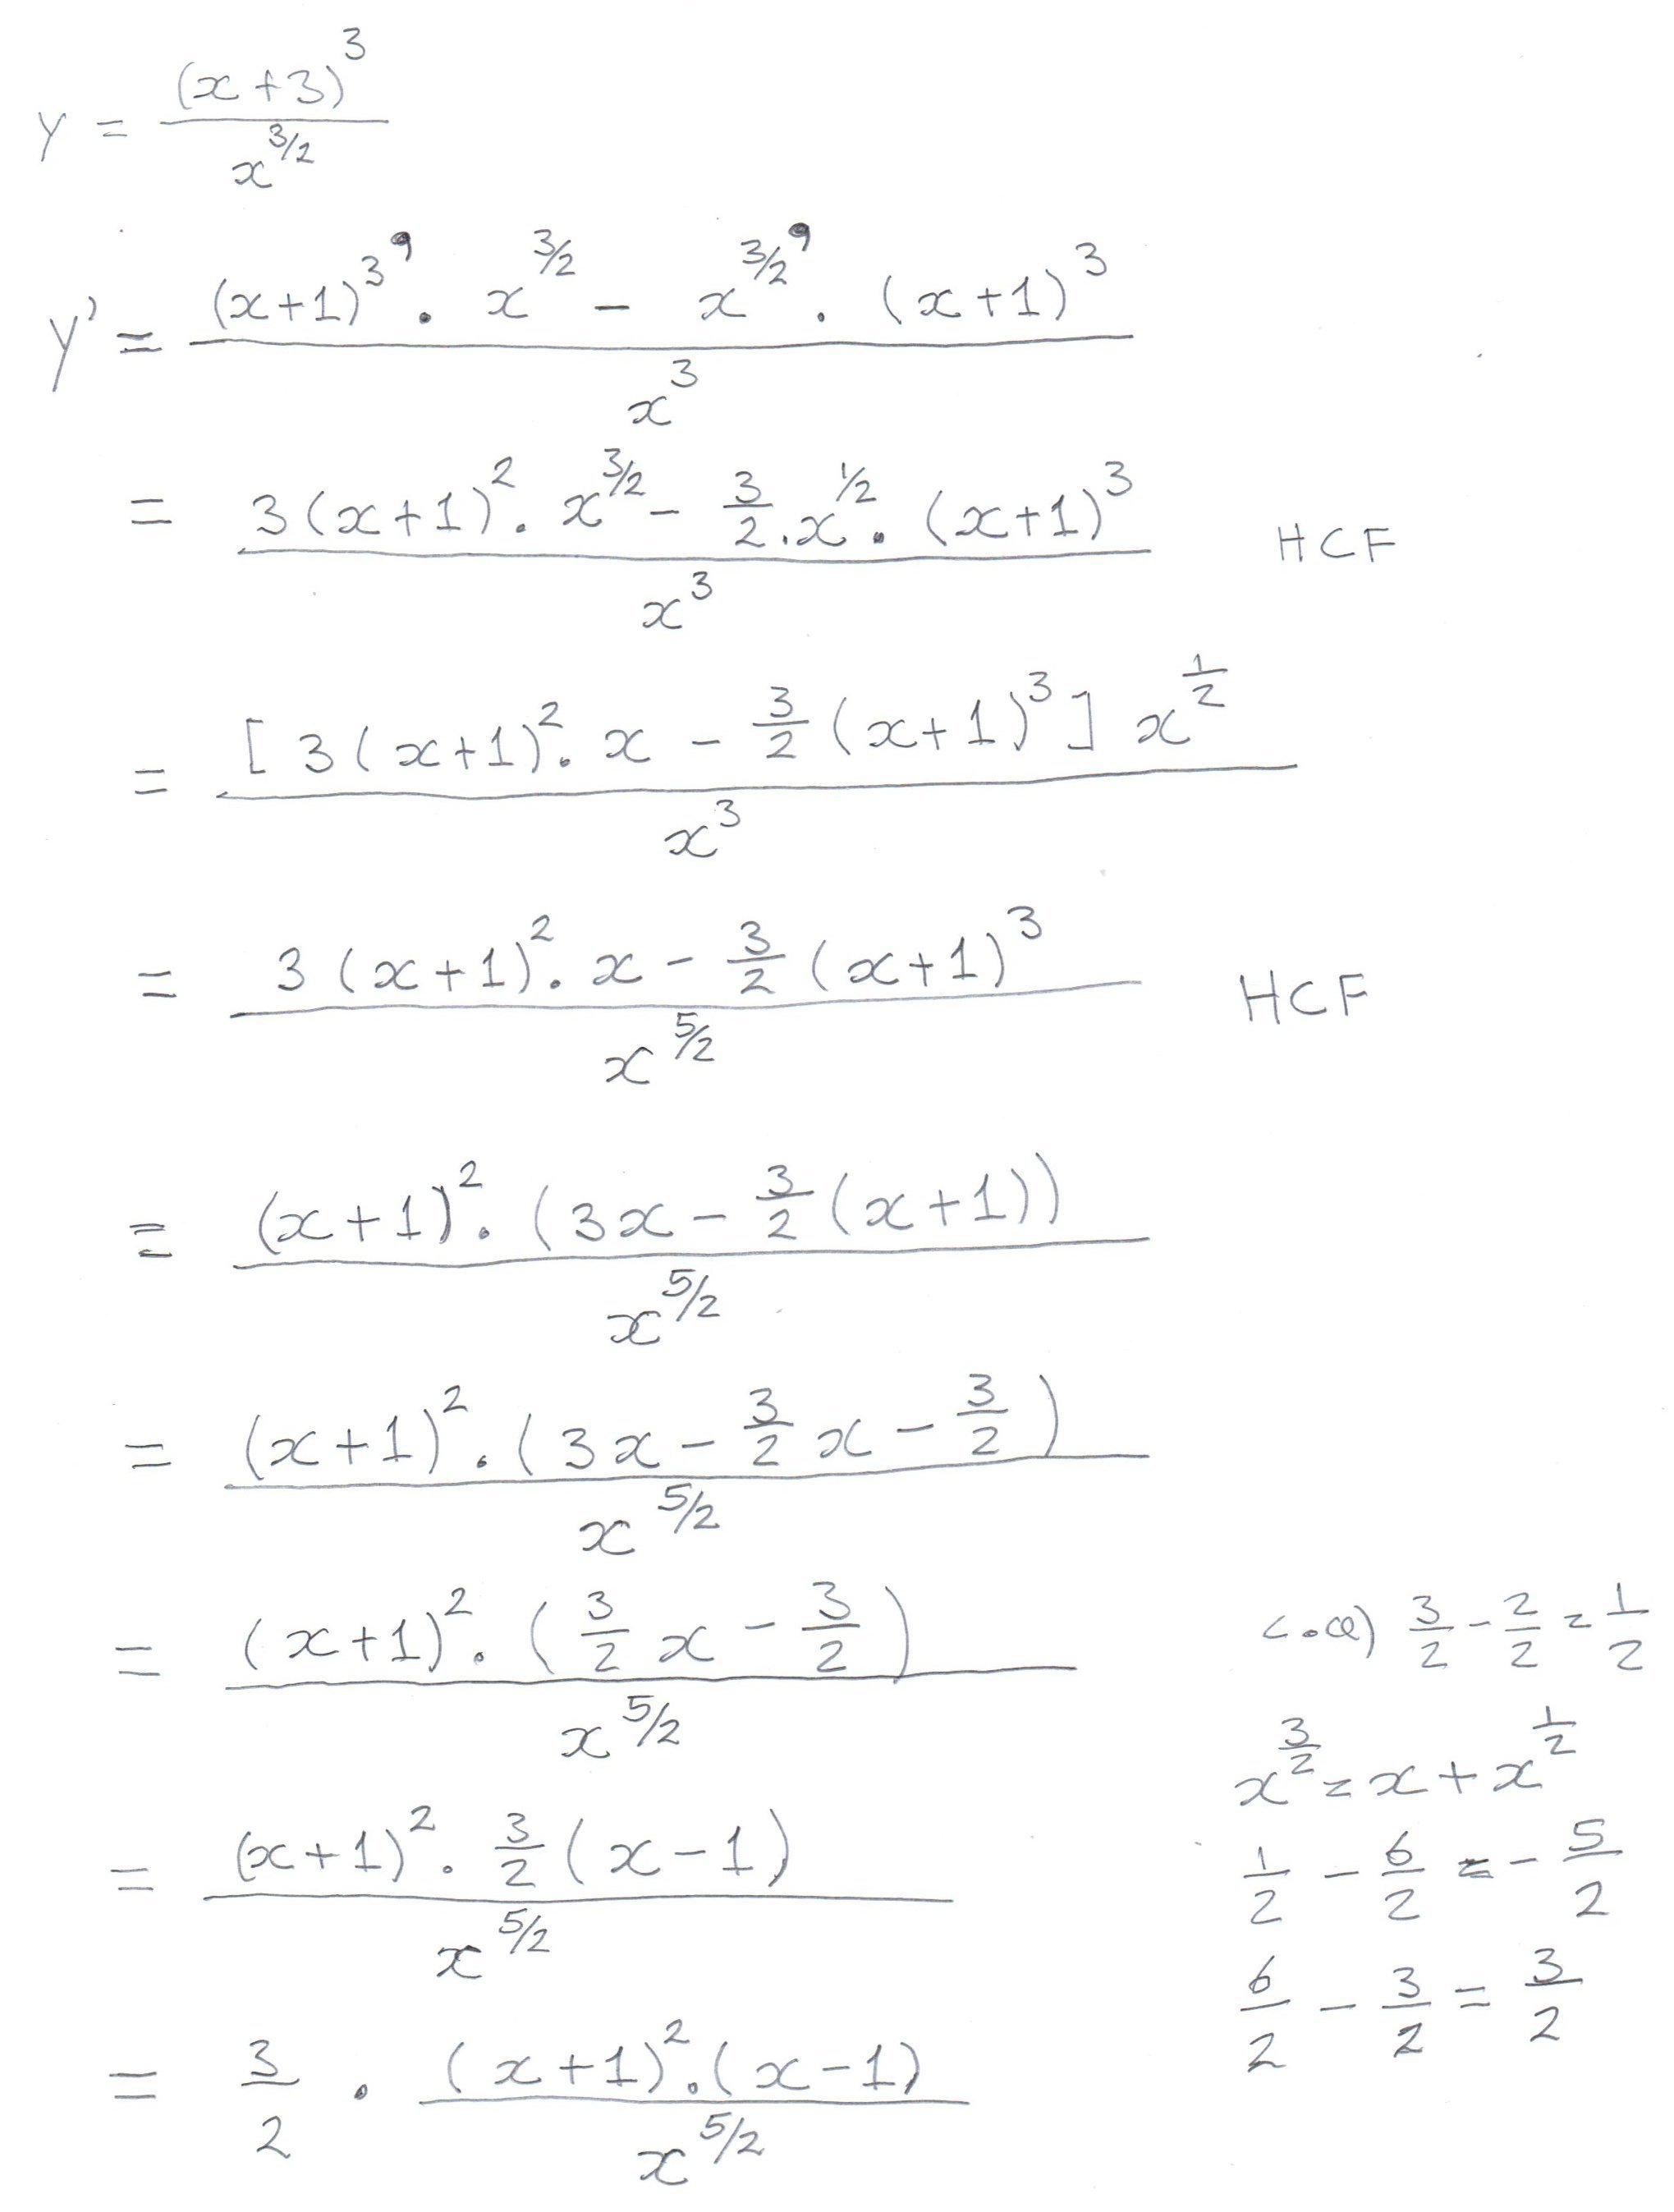 y = (x+3)^3 / x^(3/2)
y' = ((x+1)^3' . x^(3/2) - x^(3/2)' . (x+1)^3) / x^3
= (3(x+1)^2 . x^(3/2) - 3/2 . x^(1/2) . (x+1)^3) / x^3 HCF
= ([3(x+1)^2 . x - 3/2 (x+1)^3] x^(1/2)) / x^3
= (3(x+1)^2 . x - 3/2 (x+1)^3) / x^(5/2) HCF
= ((x+1)^2 . (3x - 3/2 (x+1))) / x^(5/2)
= ((x+1)^2 . (3x - 3/2 x - 3/2)) / x^(5/2)
= ((x+1)^2 . (3/2 x - 3/2)) / x^(5/2)
= ((x+1)^2 . 3/2 (x-1)) / x^(5/2)
= 3/2 . ((x+1)^2 . (x-1)) / x^(5/2)
3/2 - 2/2 = 1/2
x^(3/2) = x + x^(1/2)
1/2 - 6/2 = - 5/2
6/2 - 3/2 = 3/2